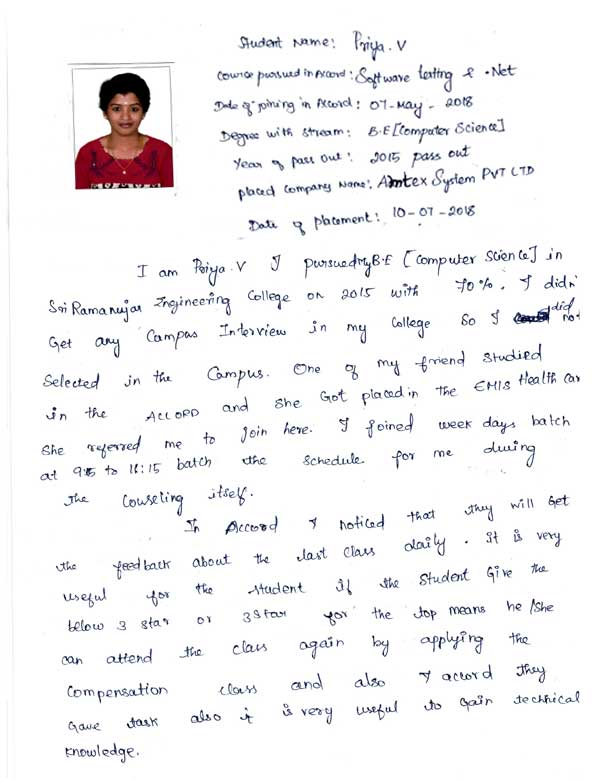 Student Name: Priya.V
Course pursued in Accord: Software testing & .Net
Date of joining in Accord: 07-May-2018
Degree with stream: B.E [Computer Science]
Year of pass out: 2015 pass out
placed Company Name: Amtex System PVT LTD
Date of placement: 10-07-2018
I am Priya.V I pursued My B.E [Computer Science] in
Sri Ramanujar Engineering College on 2015 with 70%. I didn'
Get any Campus Interview in my College So I did not
Selected in the Campus. One of my friend studied
in the ACCORD and she Got placed in the EMIS Health Car
She referred me to Join here. I Joined week days batch
at to 11:15 batch the schedule for me during
the Counseling itself.
In Accord I noticed that they will Get
the feedback about the last class daily. It is very
useful for the student if the Student Give the
below 3 star or 3 Star for the top means he/she
can attend the class again by applying the
Compensation class and also I accord they
Gave task also it is very useful to Gain technical
knowledge.